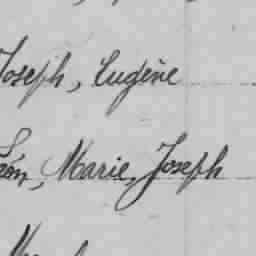 Joseph, Eugène
Léon, Marie, Joseph